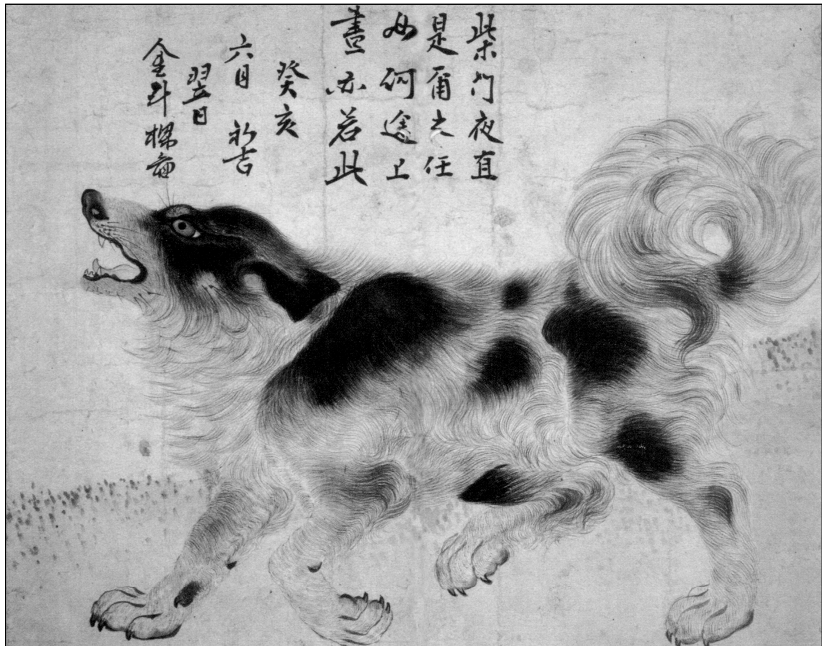 柴門夜直
是爾之任
如何途上
晝亦若此
癸亥
六月 初吉
翌日
金斗樑畵